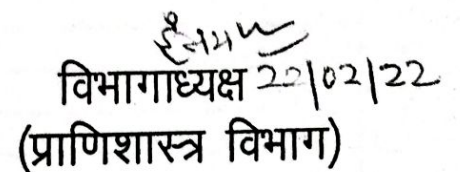 विभागाध्यक्ष 22/02/22
(प्राणिशास्त्र विभाग)